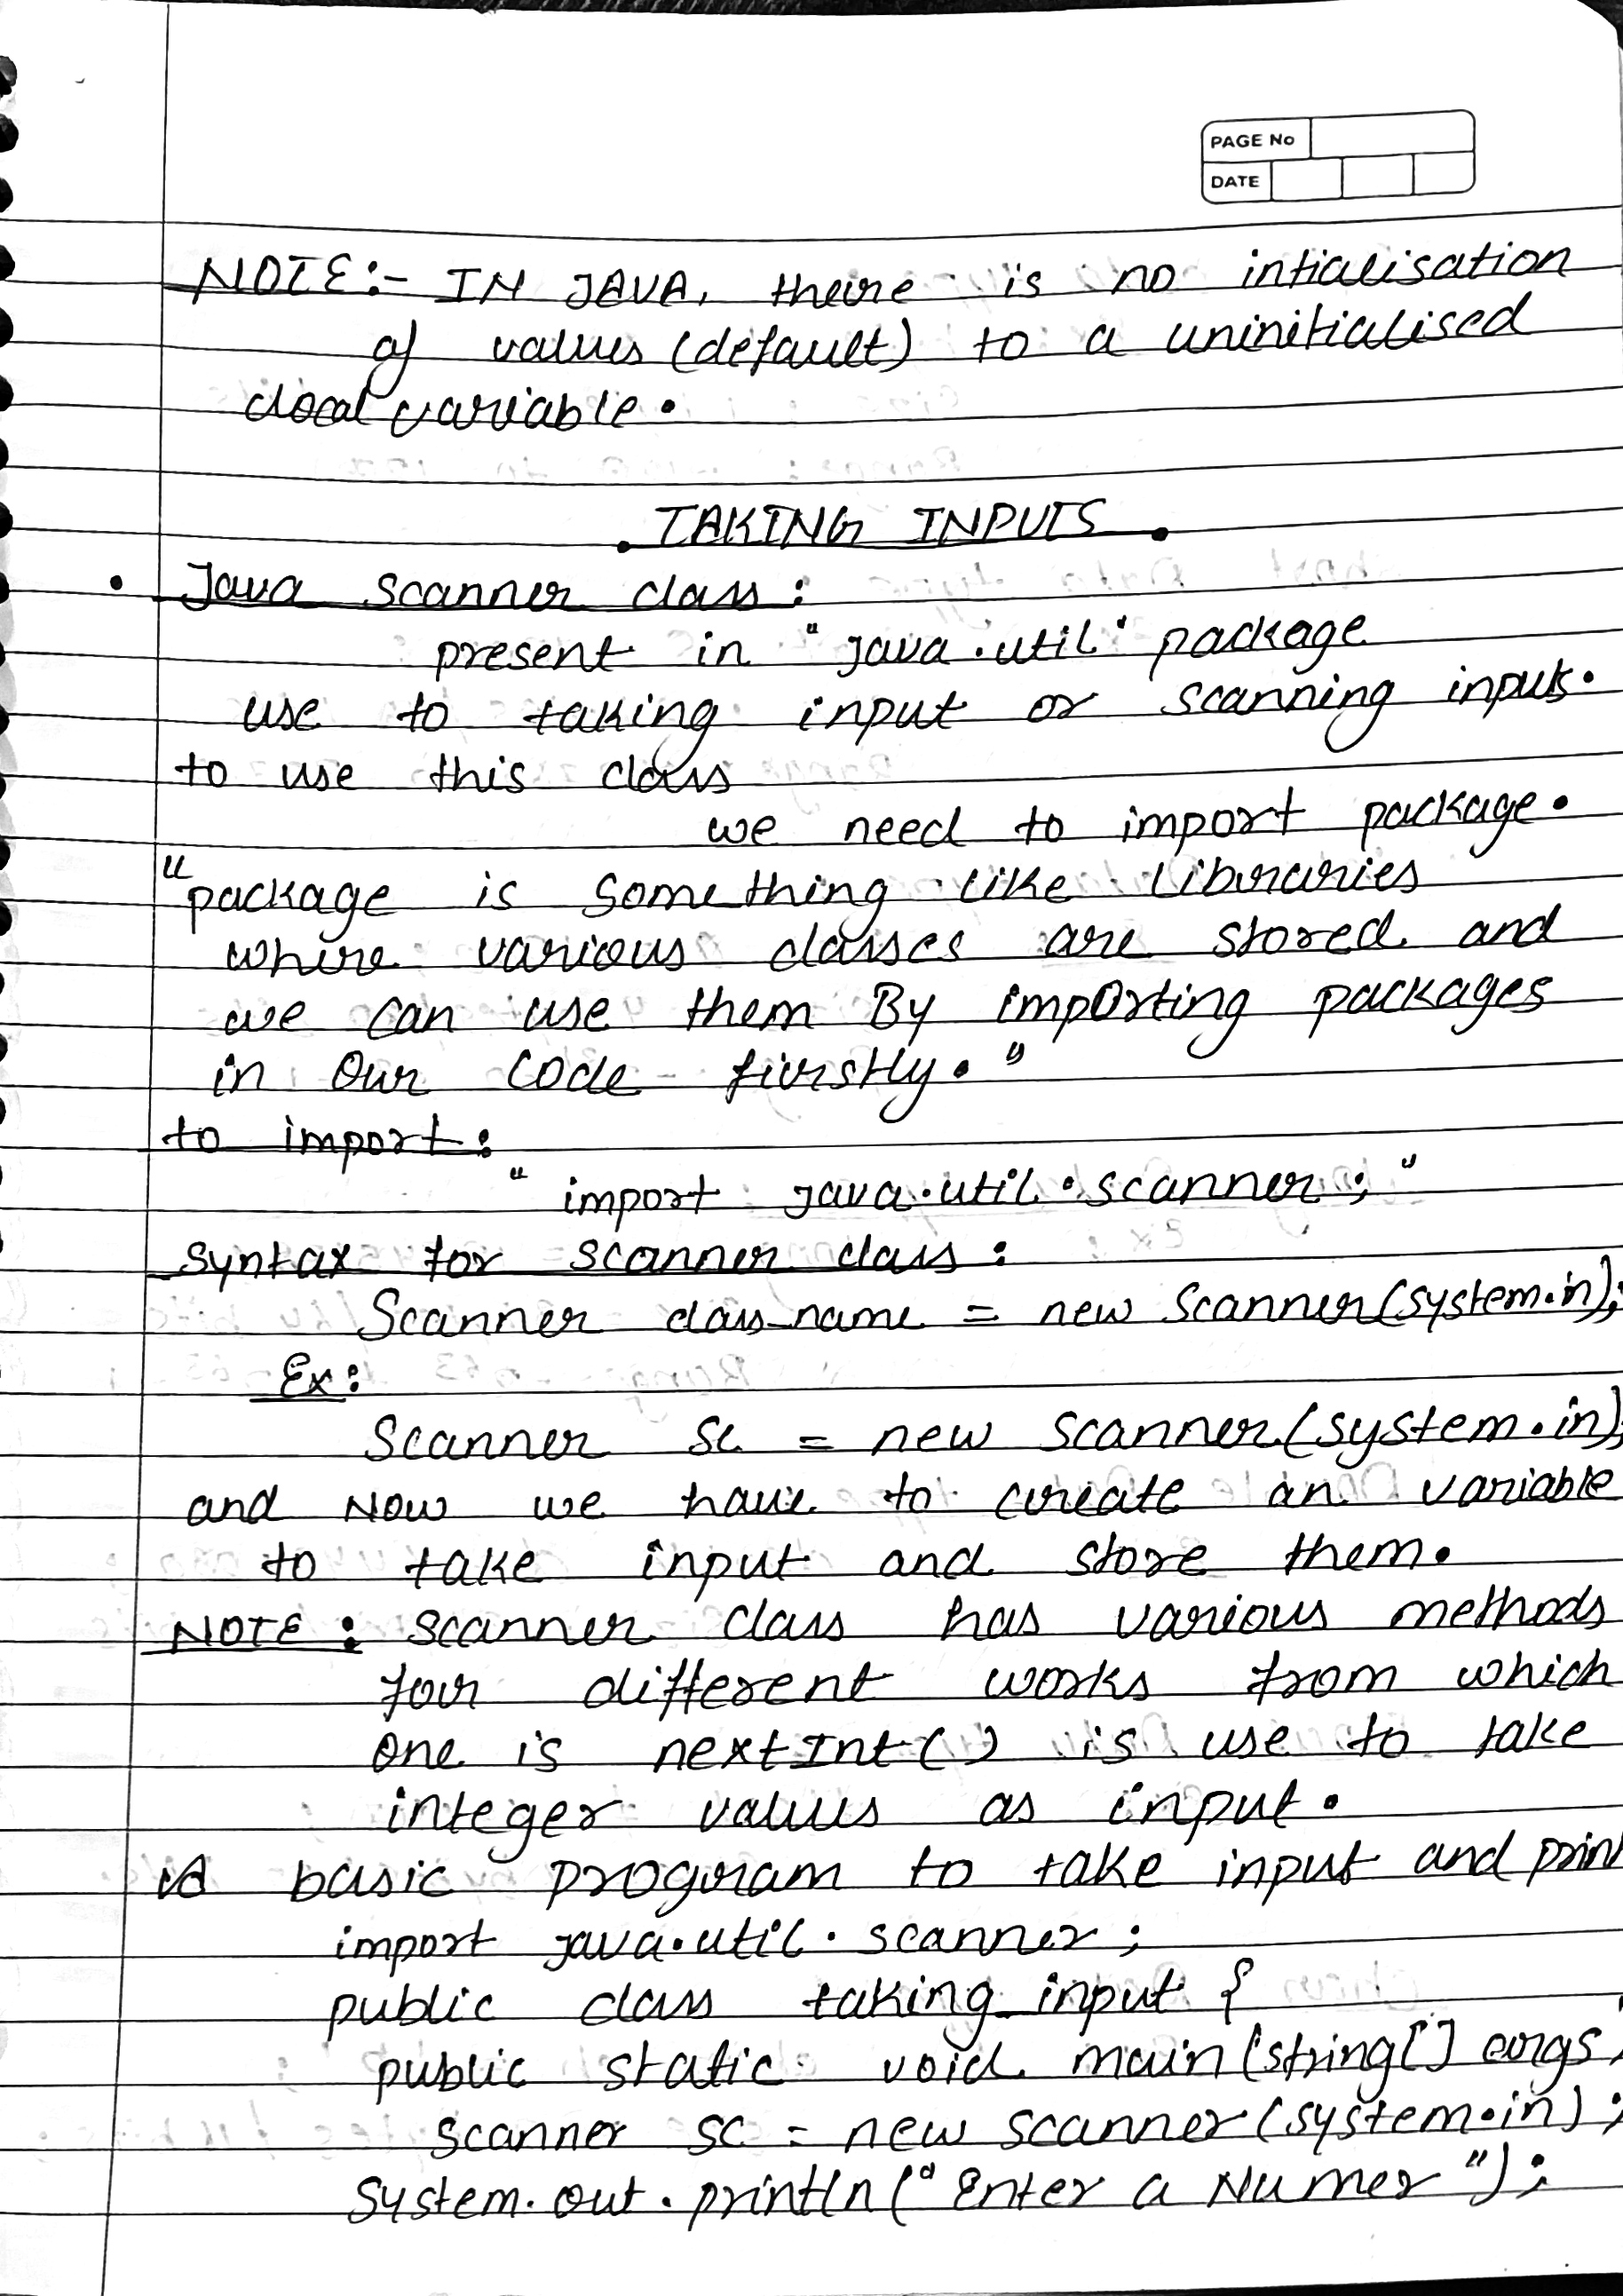 PAGE No
DATE
NOTE:- IN JAVA, there is no intialisation
of values (default) to a uninitialised
local variable.
. TAKING INPUTS .
• Java scanner class :
present in "java.util" package
use to taking input or scanning inputs.
to use this class
we need to import package.
"package is something like libraries
where various classes are stored and
we can use them By importing packages
in Our Code firstly."
to import :
"import java.util.scanner ; "
syntax for scanner class :
Scanner class_name = new Scanner(system.in);
Ex :
Scanner sc = new scanner(system.in);
and Now we have to create an variable
to take input and store them.
NOTE : scanner class has various methods
for different works from which
one is nextInt() is use to take
integer values as input.
A basic program to take input and print
import java.util.scanner ;
public class taking_input {
public static void main (string[] args
scanner sc = new scanner (system.in) ;
System.out.println("Enter a Numer") ;